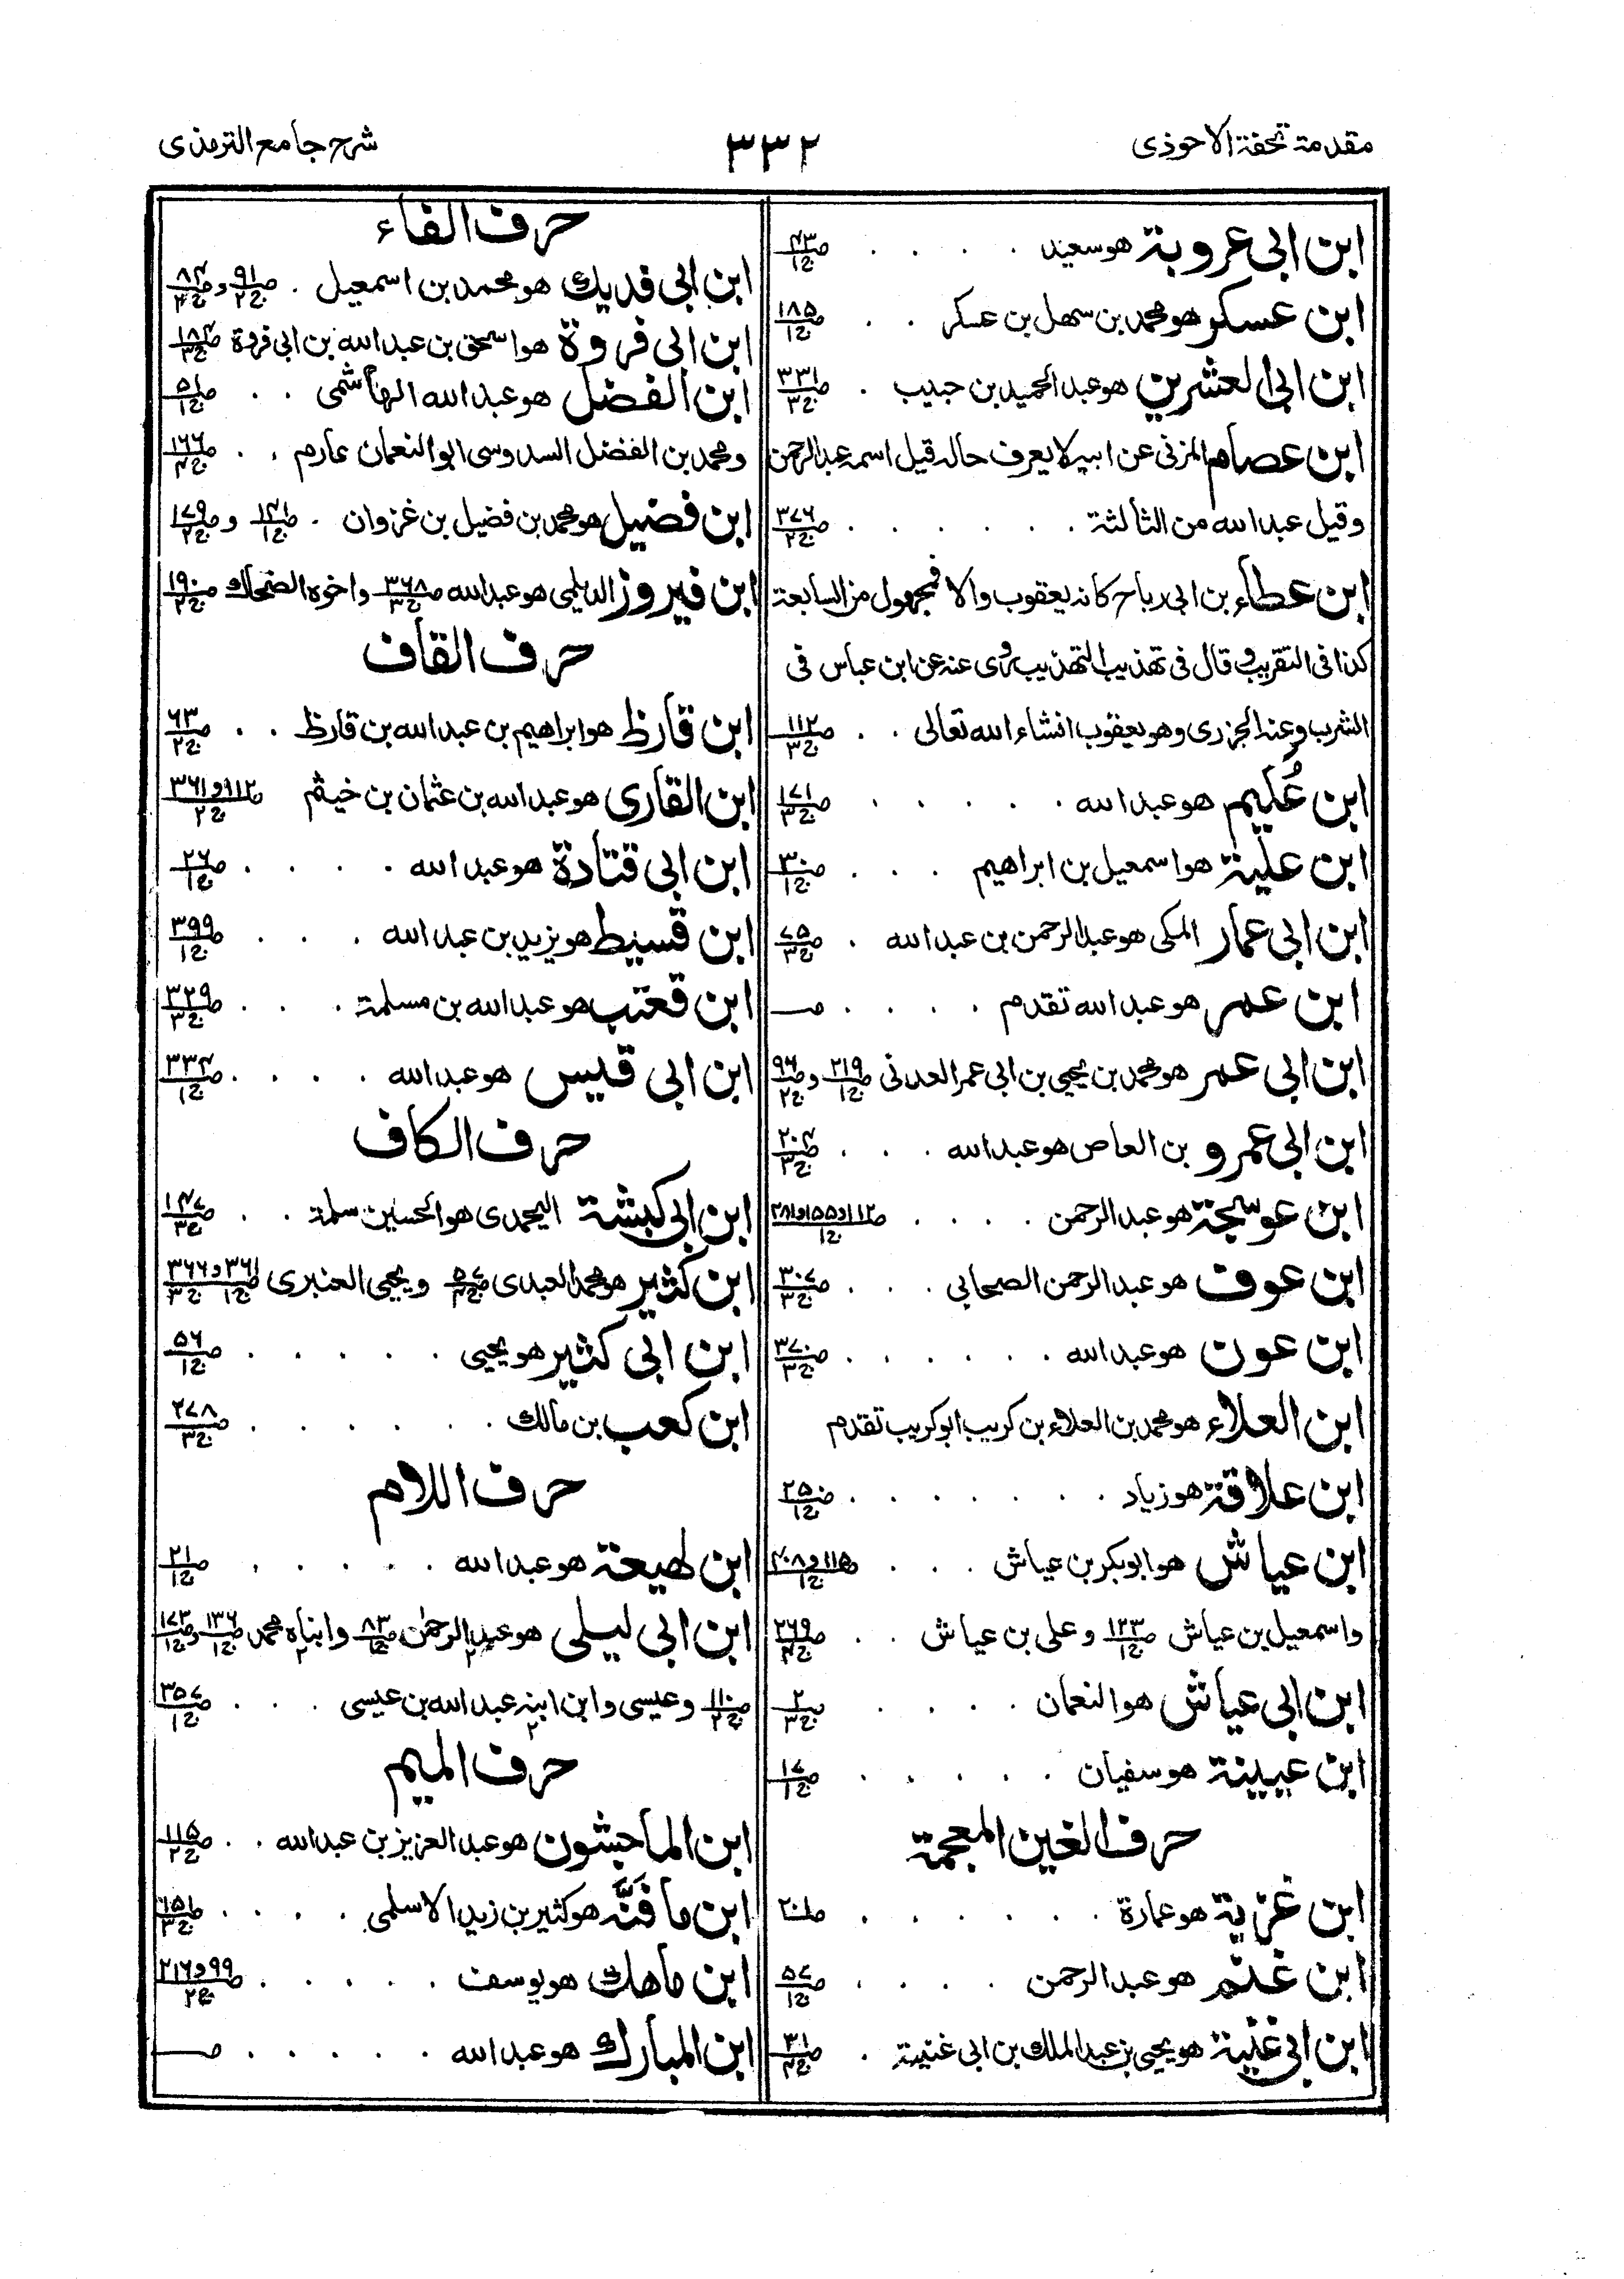 مقدمة تحفة الاحوذی
۳۳۲
شرح جامع الترمذی
ابن ابی عروبة هو سعید . . . . . ص۴۳ ج۱
ابن عسكر هو محمد بن سهل بن عسكر . . ص۱۸۵ ج۱
ابن ابی العشرین هو عبد الحمید بن حبیب . ص۳۳۱ ج۳
ابن عصام المزنی عن ابیه لا یعرف حاله قیل اسمه عبد الرحمن
وقیل عبد الله من الثالثة . . . . . . . ص۳۷۶ ج۲
ابن عطاء بن ابی رباح كانه یعقوب والا فمجهول من السابعة
كذا فی التقریب وقال فی تهذیب التهذیب روی عنه عن ابن عباس فی
الشرب وعنه الجزری وهو یعقوب انشاء الله تعالی . . ص۱۱۲ ج۳
ابن عُلیم هو عبد الله . . . . . ص۱۷۱ ج۳
ابن علیة هو اسمعیل بن ابراهیم . . . ص۳۰ ج۱
ابن ابی عمار المكی هو عبد الرحمن بن عبد الله . ص۷۵ ج۳
ابن عمر هو عبد الله تقدم . . . . . صـ
ابن ابی عمر هو محمد بن یحیی بن ابی عمر العدنی ص۲۱۹ ج۱ و ص۹۶ ج۲
ابن ابی عمرو بن العاص هو عبد الله . . . ص۲۰۴ ج۳
ابن عوسجة هو عبد الرحمن . . . . ص۱۱۲ و۱۵۵ و۲۸۱ ج۱
ابن عوف هو عبد الرحمن الصحابی . . . ص۳۰۷ ج۳
ابن عون هو عبد الله . . . . . . ص۳۷۰ ج۳
ابن العلاء هو محمد بن العلاء بن كریب ابو كریب تقدم
ابن علاقة هو زیاد . . . . . . . ص۲۵۰ ج۱
ابن عیاش هو ابو بكر بن عیاش . . . ص۱۱۵ و۴۰۸ ج۱
واسمعیل بن عیاش ص۱۲۳ ج۱ وعلی بن عیاش . . ص۲۶۹ ج۴
ابن ابی عیاش هو النعمان . . . . ص۲ ج۳
ابن عیینة هو سفیان . . . . . ص۱۷ ج۱
حرف الغین المعجمة
ابن غزیة هو عمارة . . . . . . . ص۲۰۱
ابن غنم هو عبد الرحمن . . . . ص۵۷ ج۱
ابن ابی غنیة هو یحیی بن عبد الملك بن ابی غنیة . ص۳۱ ج۴
حرف الفاء
ابن ابی فدیك هو محمد بن اسمعیل . ص۹۱ ج۲ و ص۸۴ ج۴
ابن ابی فروة هو اسحق بن عبد الله بن ابی فروة ص۱۸۴ ج۳
ابن الفضل هو عبد الله الهاشمی . . ص۵۱ ج۱
ومحمد بن الفضل السدوسی ابو النعمان عارم . . ص۱۶۶ ج۴
ابن فضیل هو محمد بن فضیل بن غزوان . ص۱۴۱ ج۱ و ص۱۷۹ ج۲
ابن فیروز الدیلمی هو عبد الله ص۳۶۸ ج۳ واخوه الضحاك ص۱۹۰ ج۲
حرف القاف
ابن قارظ هو ابراهیم بن عبد الله بن قارظ . . ص۶۳ ج۲
ابن القاری هو عبد الله بن عثمان بن خیثم ص۱۱۲ و۳۶۱ ج۲
ابن ابی قتادة هو عبد الله . . . . ص۲۶ ج۱
ابن قسیط هو یزید بن عبد الله . . . ص۳۹۹ ج۱
ابن قعنب هو عبد الله بن مسلمة . . . ص۳۲۹ ج۳
ابن ابی قیس هو عبد الله . . . . ص۳۳۴ ج۱
حرف الكاف
ابن ابی كبشة الیحمدی هو الحسین بن سلمة . . ص۱۴۷ ج۳
ابن كثیر هو محمد العبدی ص۵۷ ج۳ ویحیی العنبری ص۳۶۱ ج۱ و۳۶۶ ج۳
ابن ابی كثیر هو یحیی . . . . . ص۵۶ ج۱
ابن كعب بن مالك . . . . . . ص۲۷۸ ج۳
حرف اللام
ابن لهیعة هو عبد الله . . . . . ص۲۱ ج۱
ابن ابی لیلی هو عبد الرحمن ص۸۳ ج۱ وابناه محمد ص۱۳۶ ج۱ و ص۱۷۳ ج۱
ص۱۱۰ ج۲ وعیسی وابن ابنه عبد الله بن عیسی . . . ص۳۵۷ ج۱
حرف المیم
ابن الماجشون هو عبد العزیز بن عبد الله . . ص۱۱۵ ج۲
ابن مافَنَّه هو كثیر بن زید الاسلمی . . . . ص۱۵۱ ج۳
ابن ماهك هو یوسف . . . . . ص۹۹ و۲۱۶ ج۲
ابن المبارك هو عبد الله . . . . . صـ